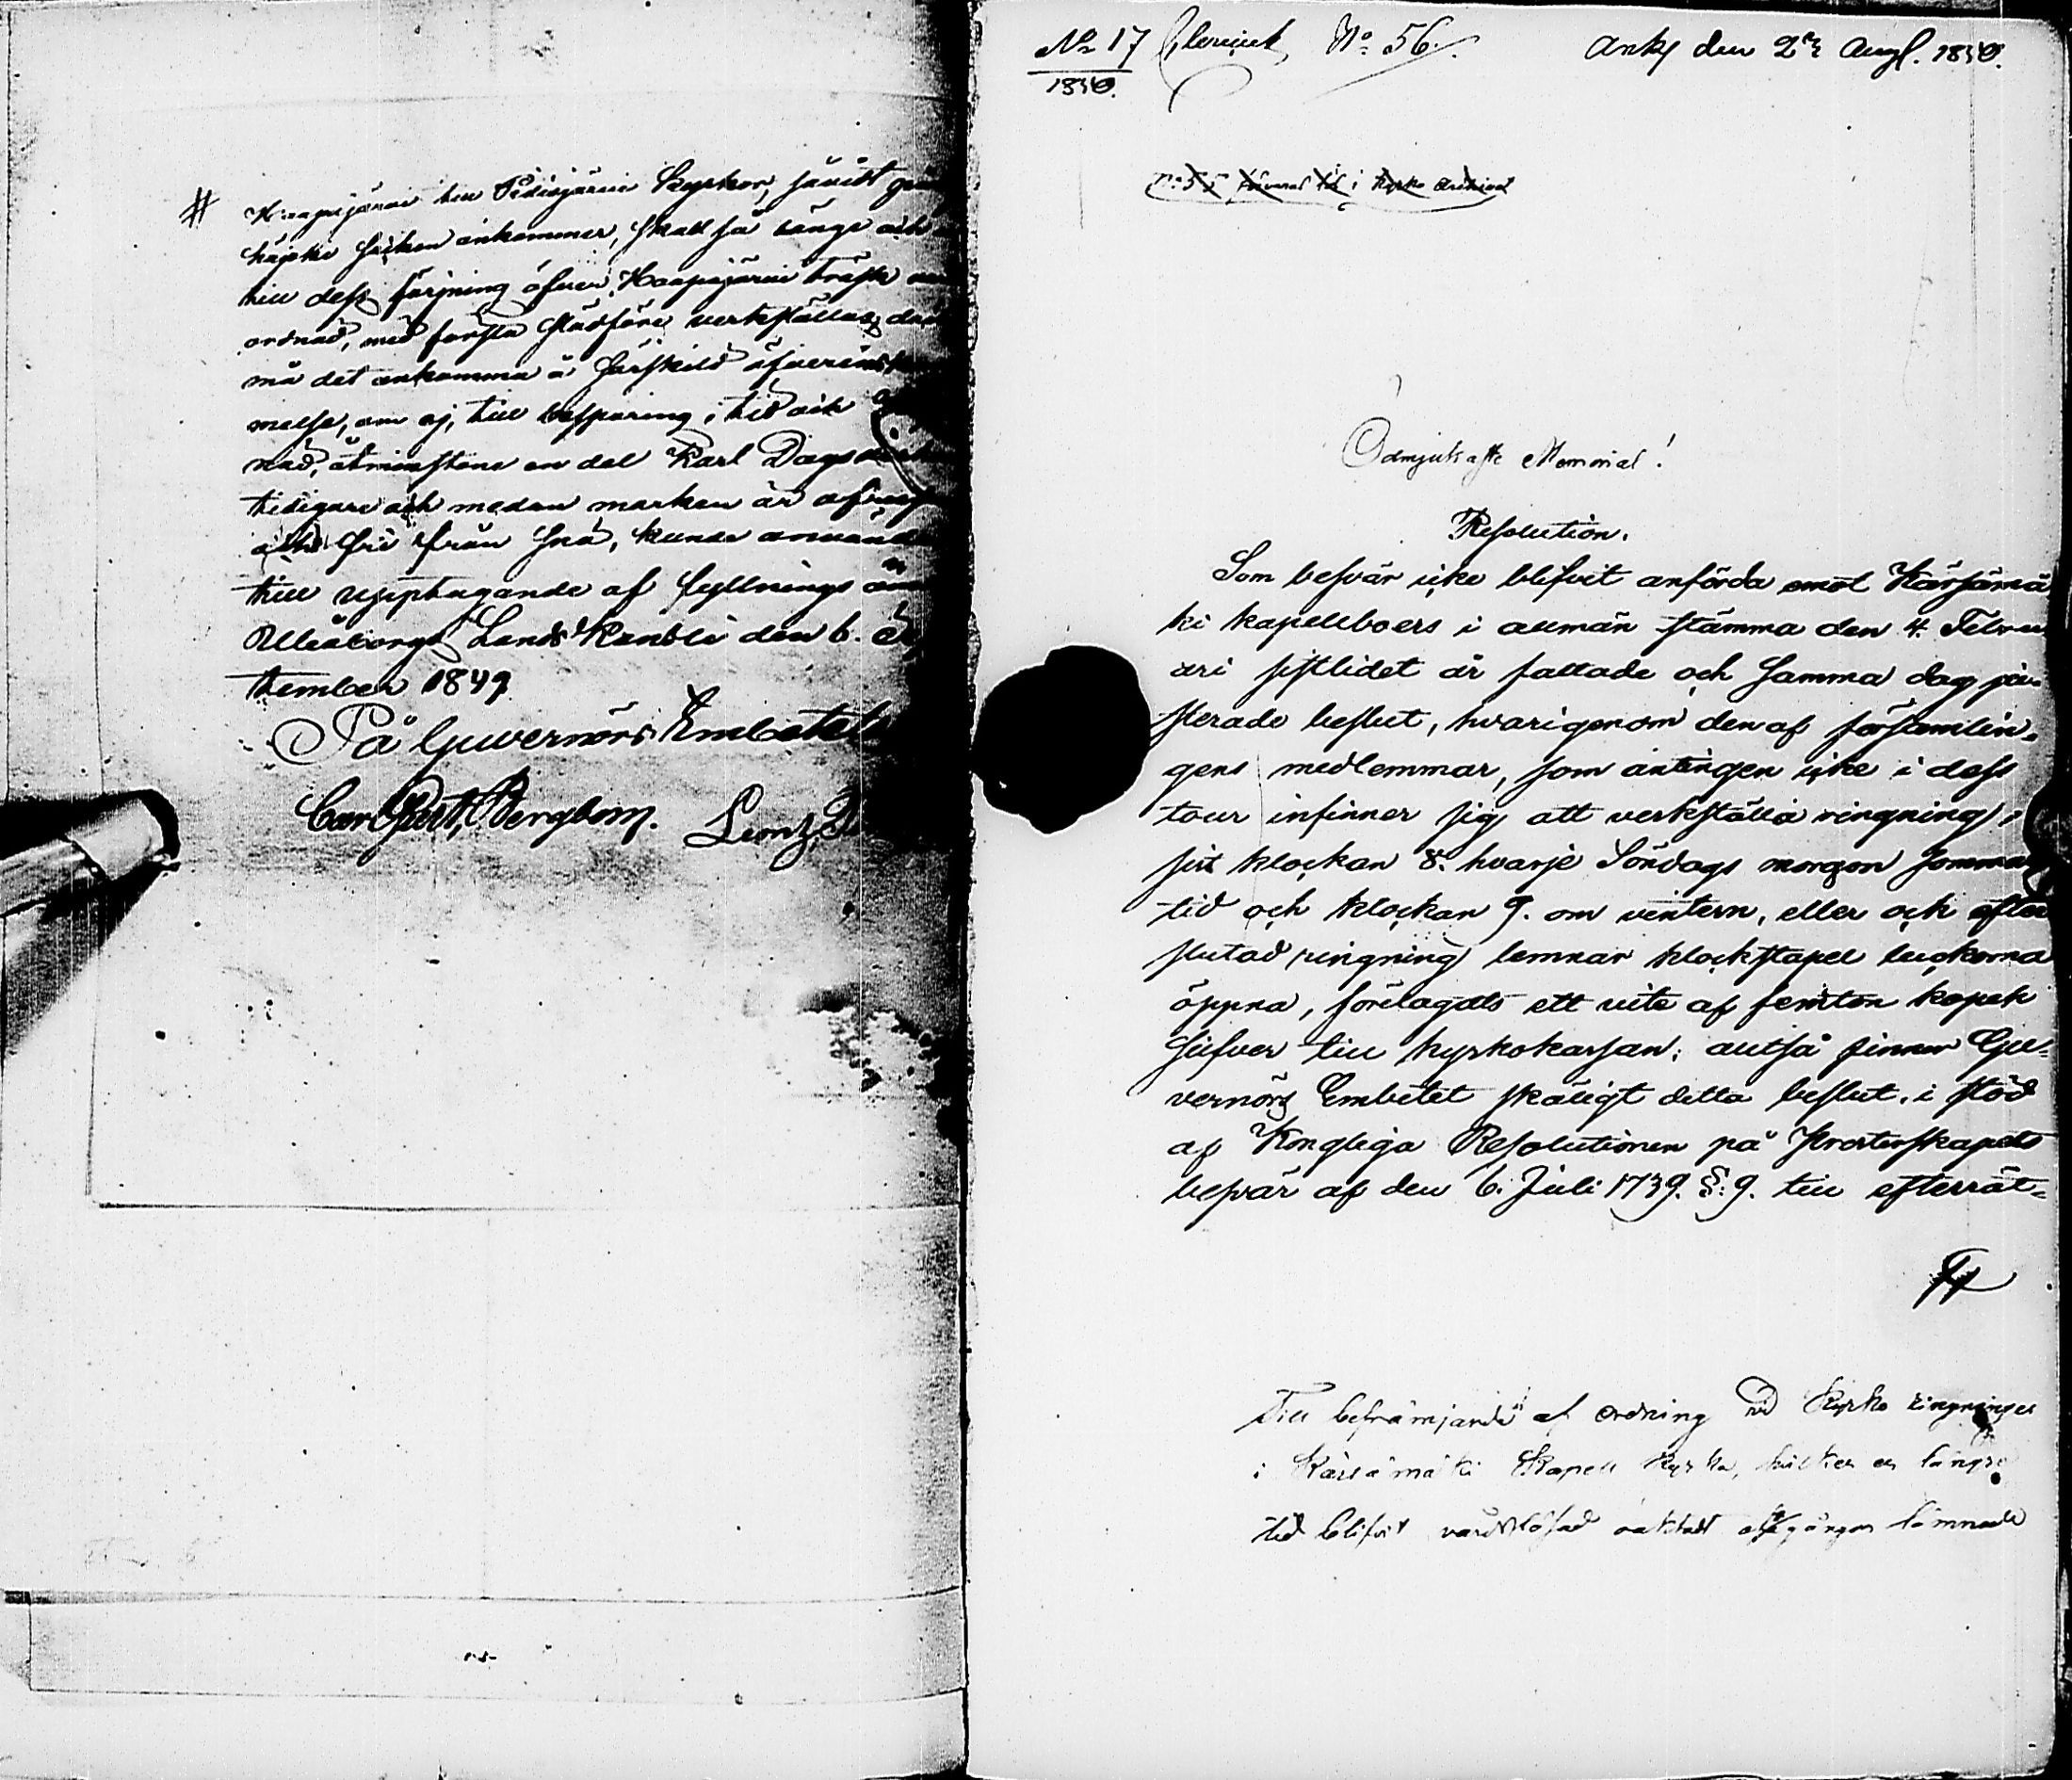 # Haapajärvi hen Pidisjärvi Kyrkor, såvidt
ankommer, skall så länge och
till dess färjning öfver Haapajärvi träsk
ordnad, med första slädföre verkställas, dock
må det ankomma å särskild öfverens
melse, om ej, till besparing i tid och
nad, åtminstone en del Karl Dagsverken
tidigare och medan marken är
och fri från snö, kunde
till upptagande af fyllnings
Uleåborgs Lands Kansli den 6.
tember 1849
På Guvernörs Embetets
Carl Gust. Bergbom. Lor
No 17 No 56. Ank den 2 Aug. 1850.
1850.
i Kyrko Archivet
Ödmjukaste Memorial!
Resolution.
Som besvär icke blifvit anförda emot Kärsämä
ki kapellboers i allmän stämma den 4. Febru
ari sistlidet år fattade och samma dag ju-
sterade beslut, hvarigenom den af församlin-
gens medlemmar, som antingen icke i dess
tour infinner sig att verkställa ringning,
sist klockan 8. hvarje Söndags morgon sommar
tid och klockan 9. om vintern, eller ock efter
slutad ringning lemnar klockstapel luckorna
öppna, förelagdts ett vite af femton kopek
silfver till kyrkokassan; alltså finner Gu-
vernörs Embetet skäligt detta beslut, i stöd
af Kongliga Resolutionen på Presterskapets
besvär af den 6. Juli 1739. §: 9. till efterrät-
Till befrämjande af ordning vid Kyrko ringningen
i Kärsämäki Kapell Kyrka, hvilken en längre
tid blifvit vårdslösad gånger lämnade